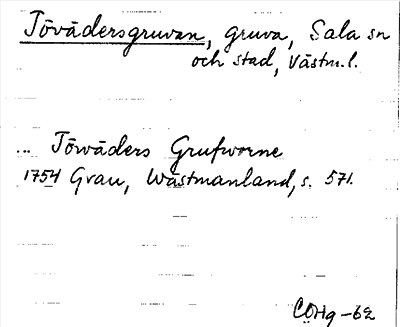 Tövädersgruvan, gruva, Sala sn
och stad, Västm.l.
... Töwäders Grufworne
1754 Grau, Wästmanland, s. 571.
COHg -62